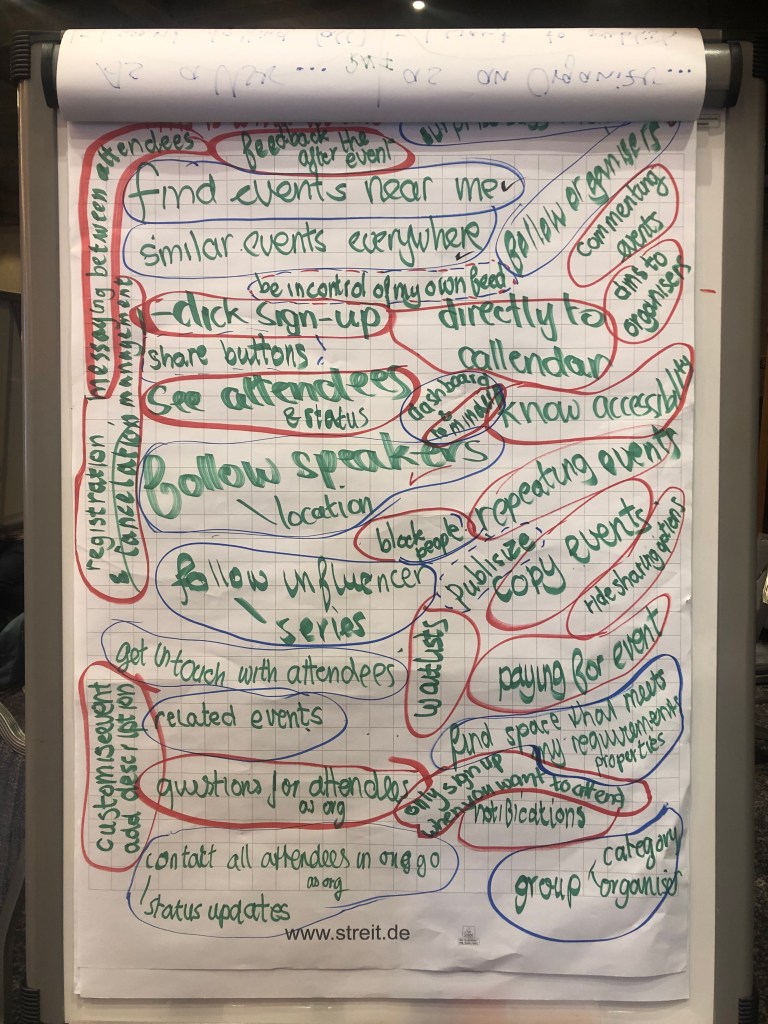 As a User ... as an Organiser...
messaging between attendees
feedback
after the
event
find events near me
follow organisers
commentang
events
similar events everywhere
aims to
organisers
be in control of my own feed
-click sign-up
directly to
callendar
share buttons
see attendees
& status
dashboard
know accessiblity
registration
& Cancelation management
follow speakers
\location
repeating events
block
people
publisize
copy events
ride sharing options
follow influencer
\series
waitlists
get in touch with attendees
paying for event
related events
find space that meets
my requirements
properties
customise event
add description
questions for attendees
as org
only sign up
when you want to attend
notifications
contatt all attendees in one go
as org
/status updates
group
category
organiser
www.streit.de